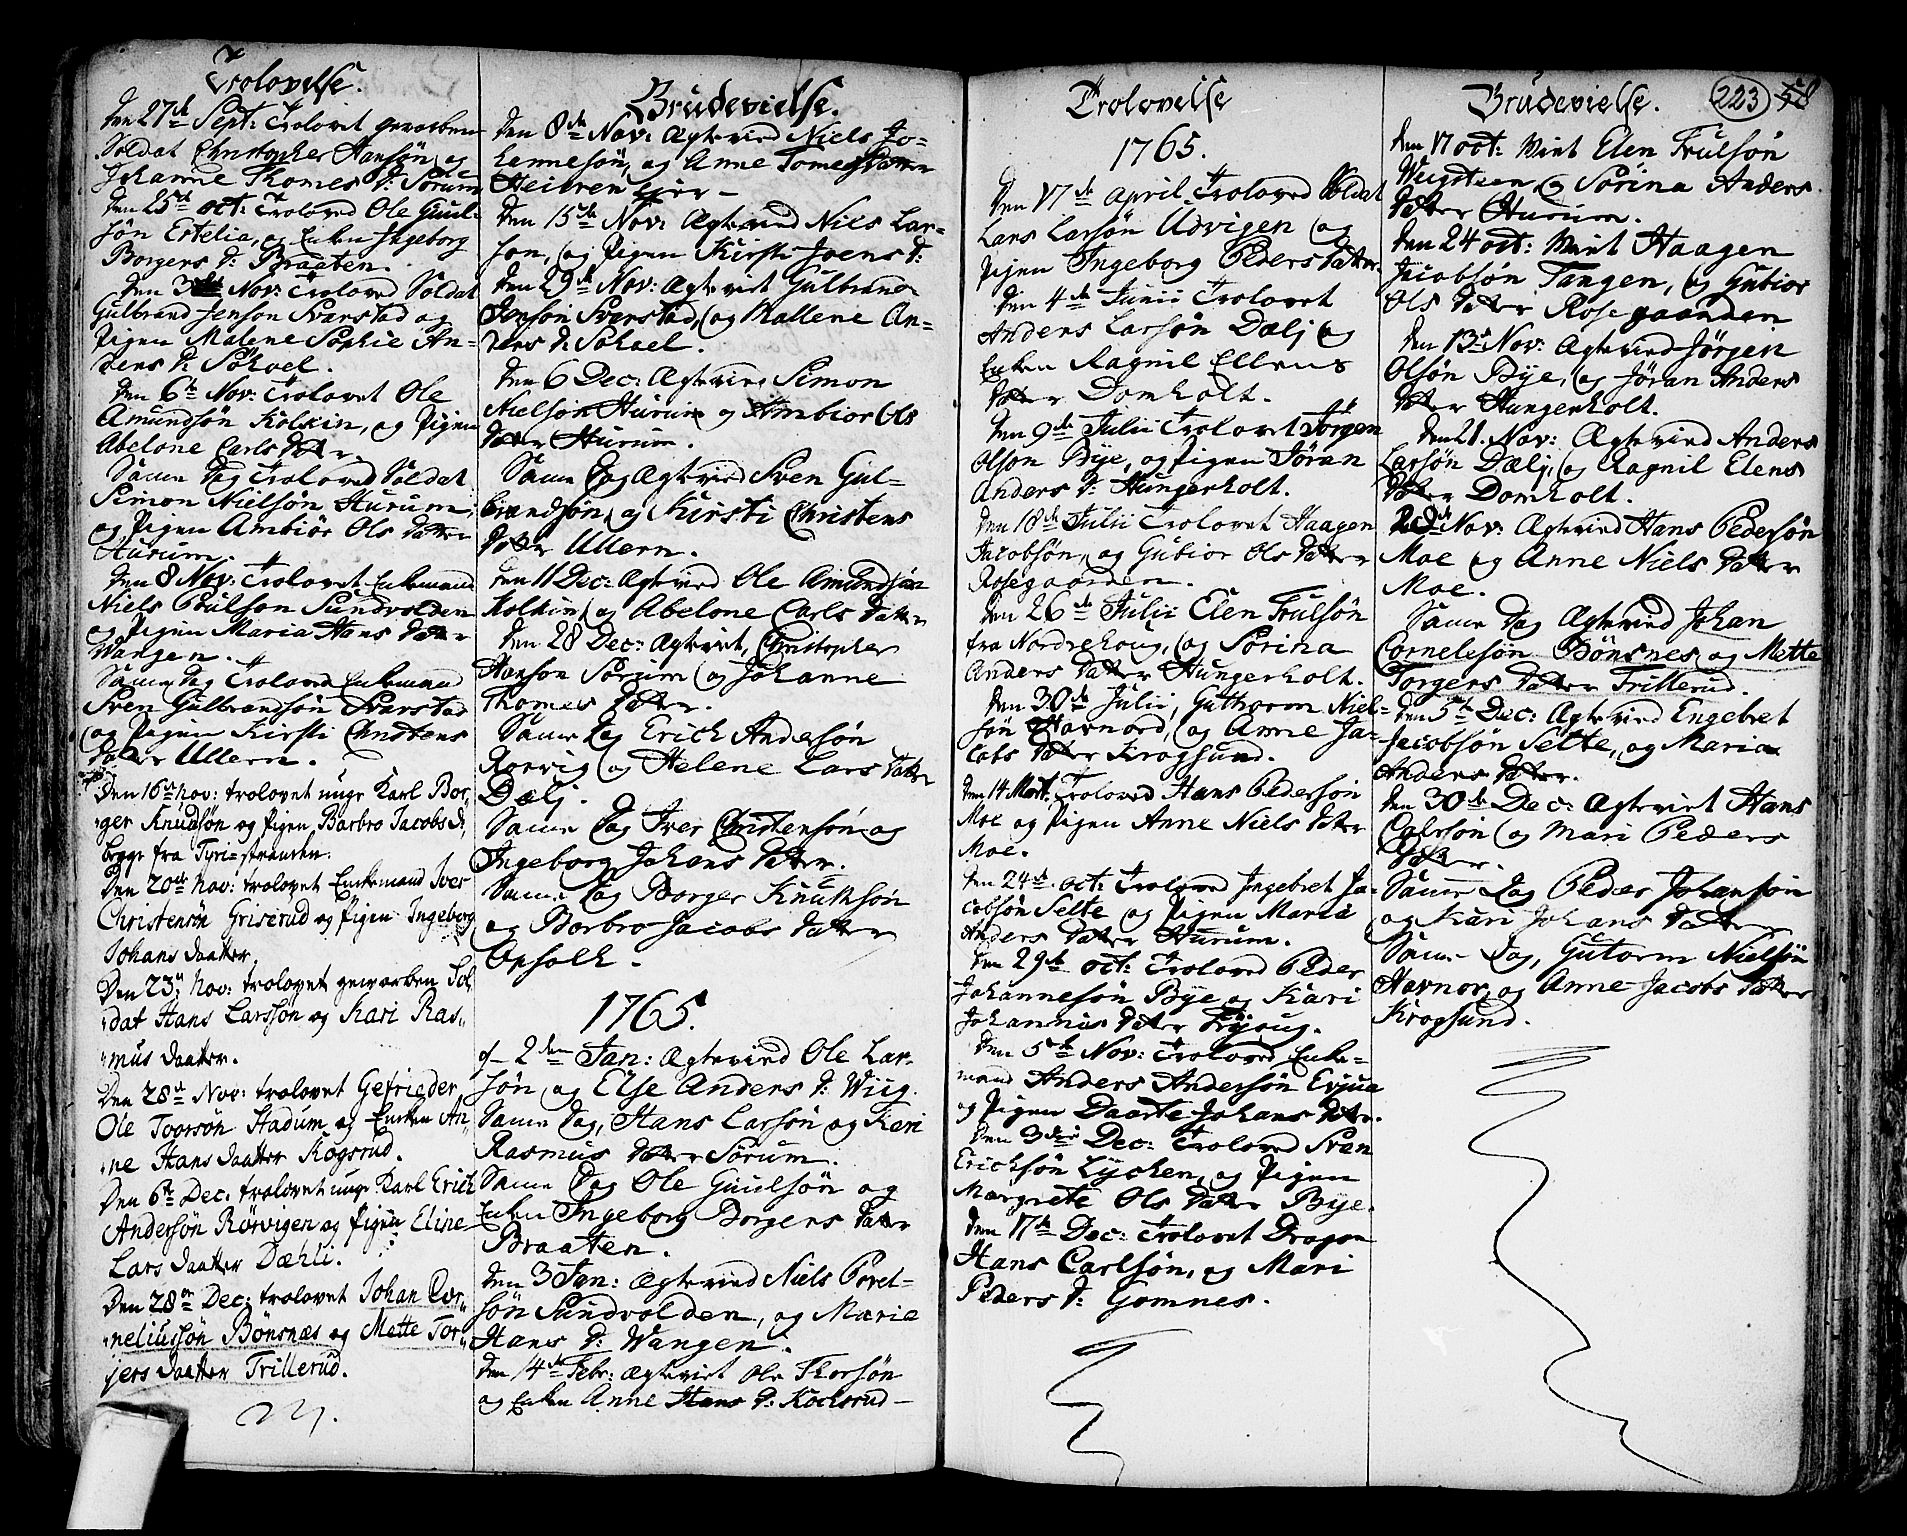 Trolovelse.
den 27de Sept: Trolovet gevorben
Soldat Christopher Hansøn og
Johanne Thomes D: Sørum
den 25de oct: Troloved Ole Guul-
søn Estelia, og Enken Ingeborg
Borgers D: Braaten.
den 3de Nov: Troloved Soldat
Gulbrand Jenson Svarstad og
Pigen Malene Sophie An-
ders D: Sohoel.
den 6te Nov: Trolovet Ole
Amundsøn Kolkin, og Pigen
Abelone Carls Datter.
Samme Dag Troloved Soldat
Simon Nielsøn Hurum,
og Pigen Ambiør Ols Datter
Hurum.
den 8 Nov: Trolovet Enkemand
Niels Poulson Sundvolden
og Pigen Maria Hans Datter
Wangen.
Samme Dag Troloved Enkemand
Sven Gulbrandsøn Svarstad
og Pigen Kirsti Christens
Datter Ullern.
Den 16de nov: trolovet unge Karl Bor-
ger Knudsøn og Pigen Barbro Jacobs d,
begge fra Tyristranden.
Den 20de nov: trolovet Enkemand Iver
Christensøn Griserud og Pigen Ingeborg
Johans daatter.
Den 23 nov: trolovet gevorben Sol-
dat Hans Larssøn og Kari Ras-
mus daatter.
Den 28de Nov: trolovet Gefrieder
Ole Toorsøn Stadum og Enken An-
ne Hans daatter Kogsrud.
Den 6te Dec: trolovet unge Karl Erich
Andersøn Rørvigen og Pigen Eline
Lars daatter Dæhli.
Den 28de Dec: trolovet Johan Cor-
neliussøn Bønsnæs og Mette Tor-
jers daatter Trillerud.
Brudevielse.
den 8de Nov: Ægtevied Niels Jo-
hannesøn, og Anne Tomes Datter
den 15de Nov: Ægtevied Niels Lar-
son, og Pigen Kirsti Joens D:
den 29de Nov: Ægteviet Gulbrand
Jenson Svarstad, og Mallene An-
ders D: Sohoel.
den 6 Dec: Ægtevied Simon
Nielsøn Hurum og Ambior Ols
Datter Hurum.
Samme Dag Ægtevied Sven Gul-
brandsøn, og Kirsti Christens
Datter Ullern.
den 11 Dec: Ægtevied Ole Amundsøn
Kolkin, og Abelone Carls Datter
den 28 Dec: Ægteviet, Christopher
Hanson Sørum og Johanne
Thomes Datter.
Samme Dag Erich Andersøn
Rorvig og Helene Lars Datter
Dælj.
Samme Dag Iver Christensøn og
Ingeborg Johans Datter.
Samme Dag Borger Knutsøn
og Borbro Jacobs Datter
Opsolh.
1765.
2den Jan: Ægtevied Ole Lar-
søn, og Else Anders D: Wiig.
Samme Dag, Hans Larsøn og Kari
Rasmus Datter Sørum.
Samme Dag Ole Guulsøn og
Enken Ingeborg Borgers Datter
Braaten.
den 3 Jan: Ægtevied Niels Povel-
søn Sundvolden, og Maria
Hans D: Wangen.
den 14de Febr: Ægteviet Ole Thorsøn
og Enken Anne Hans D: Kocksrud
Trolovelse
1765.
Den 17de April Troloved Soldat
Lars Larsøn Udvigen og
Pigen Ingeborg Peders Datter.
den 4de Junii Trolovet
Anders Larsøn Dælj og
Enken Ragnil Ellens
Datter Domholt.
den 9de Julii Trolovet Jörgen
Olson Bye, og Pigen Jöran
Anders D: Hungerholt.
den 18de Julii Trolovet Haagen
Jacobsøn, og Gubior Ols Datter
Rosegaarden.
den 26de Julii Elen Trulsøn
fra Nordrehoug, og Sørina
Anders Datter Hungerholt.
den 30de Julii, Guttorm Niel-
søn Havnord, og Anne Ja-
cobs Datter Krogsund.
den 14 Mart: Troloved Hans Pedersøn
Moe og Pigen Anne Niels Datter
Moe.
den 24de oct: Troloved Ingebret Ja-
cobsøn Selte og Pigen Maria
Anders Datter Hurum.
den 29de oct: Troloved Peder
Johannesøn Bye og Kari
Johannis Datter
den 5te Nov: Troloved Enke-
mand Anders Andersøn Evjua
og Pigen Daarte Johans Datter.
den 3die Dec: Troloved Sven
Ericksøn Lychen, og Pigen
Margrete Ols Datter Bye.
den 17de Dec: Trolovet Dragon
Hans Carlsøn, og Mari
Peders D: Gomnes.
Brudevielse. 223 58
den 17 oct: Wiet Elen Trulsøn
Weigsteen og Sørina Anders
Datter Hurum.
den 24 oct: Wiet Haagen
Jacobsøn Tangen, og Gubior
Ols Datter Rosegaarden
den 13de Nov: Ægtevied Jörgen
Olsøn Bye, og Jöran Anders
Datter Hungerholt.
den 21. Nov: Ægtevied Anders
Larsøn Dælj, og Ragnil Elens
Datter Domholt.
Nov: Ægtevied Hans Pedersøn
Moe og Anne Niels Datter
Moe.
Samme Dag Ægtevied Johan
Cornelesøn Bönsnes og Mette
Torgers Datter Trillerud.
den 5te Dec: Ægtevied Engebret
Jacobsøn Selte, og Maria
Anders Datter.
den 30de Dec: Ægteviet Hans
Calrsøn og Mari Peders
Datter.
Samme Dag Peder Johansøn
og Kari Johans Datter
Samme Dag, Gutorm Nielsøn
Havnor, og Anne Jacobs Datter
Krogsund.